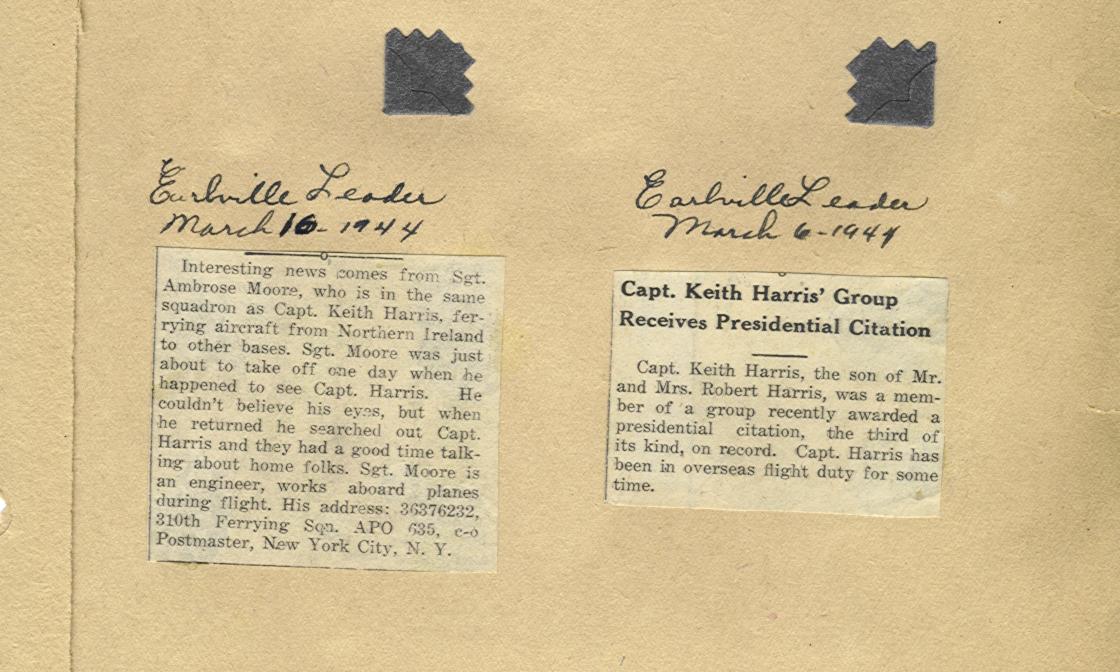 Earlville Leader
March 16-1944
Interesting news comes from Sgt.
Ambrose Moore, who is in the same
squadron as Capt. Keith Harris, fer-
rying aircraft from Northern Ireland
to other bases. Sgt. Moore was just
about to take off one day when he
happened to see Capt. Harris. He
couldn't believe his eyes, but when
he returned he searched out Capt.
Harris and they had a good time talk-
ing about home folks. Sgt. Moore is
an engineer, works aboard planes
during flight. His address: 36376232,
310th Ferrying Sqn. APO 635, c-o
Postmaster, New York City, N. Y.
Earlville Leader
March 6-1944
Capt. Keith Harris' Group
Receives Presidential Citation
Capt. Keith Harris, the son of Mr.
and Mrs. Robert Harris, was a mem-
ber of a group recently awarded a
presidential citation, the third of
its kind, on record. Capt. Harris has
been in overseas flight duty for some
time.